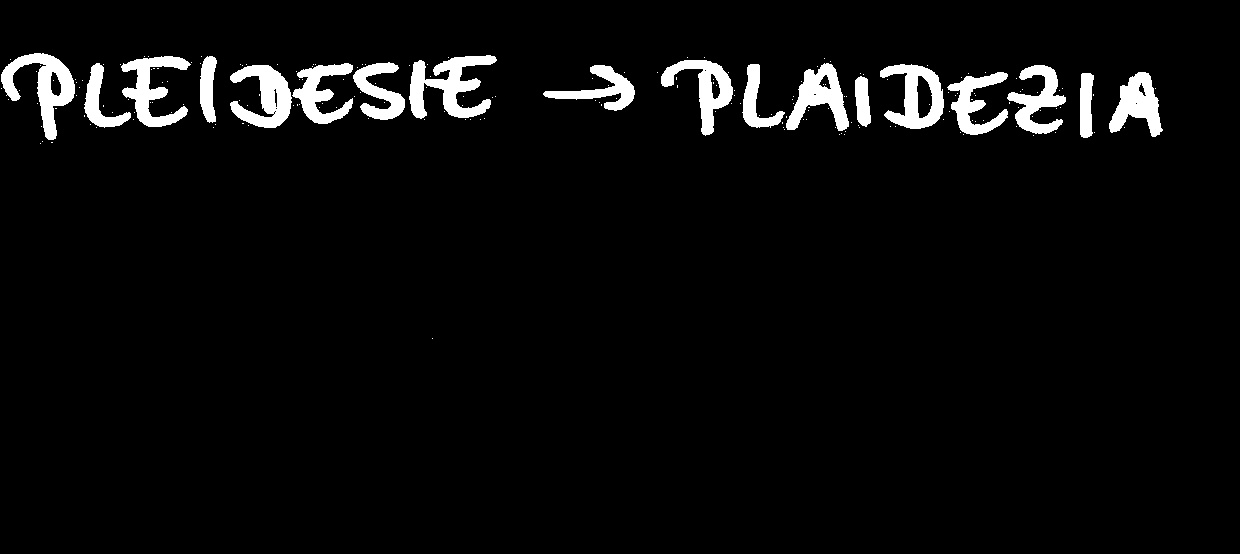 PLEIDESIE → PLAIDEZIA